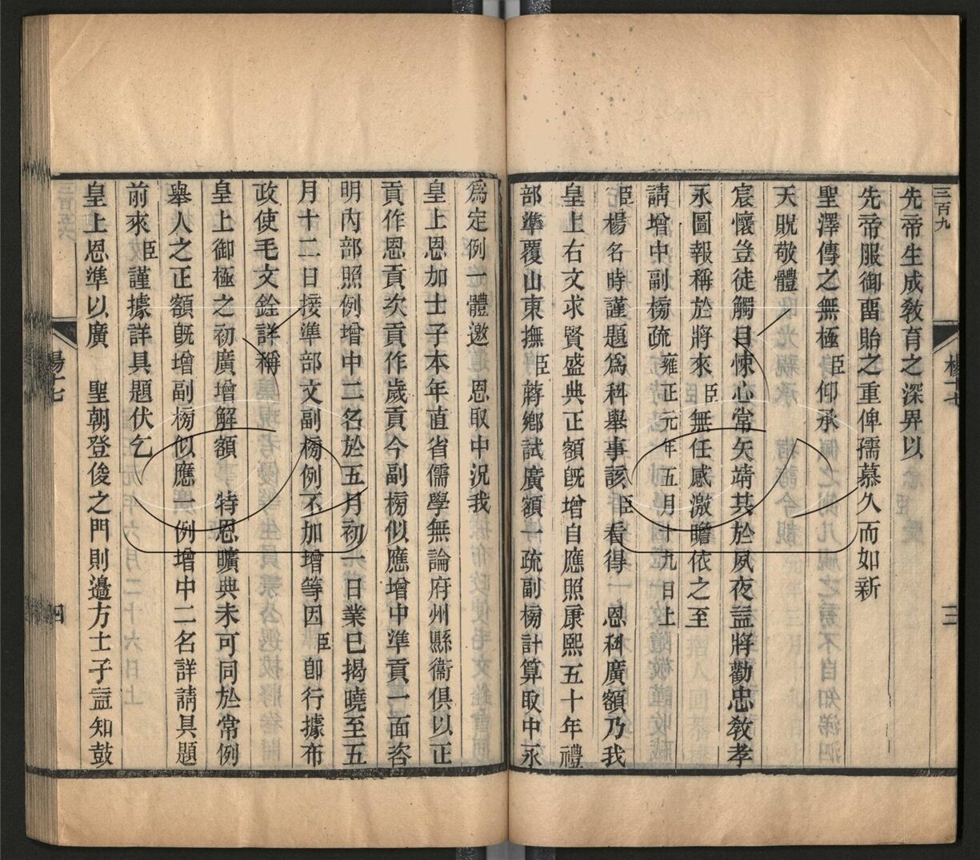 三百九
先帝生成敎育之深畀以
先帝服御畱貽之重俾孺慕久而如新
聖澤傳之無極臣仰承
天貺敬體
宸懷豈徒觸目悚心常矢靖共於夙夜寔將勸忠敎孝
永圖報稱於將來臣無任感激瞻依之至
請增中副榜疏 雍正元年五月十九日上
臣楊名時謹題爲科舉事該臣看得 恩科廣額乃我
皇上右文求賢盛典正額旣增自應照康熙五十年禮
部準覆山東撫臣蔣鄉試廣額一疏副榜計算取中永
楊十七
三
爲定例一體邀 恩取中況我
皇上恩加士子本年直省儒學無論府州縣衞俱以正
貢作恩貢次貢作歲貢今副榜似應增中準貢一面咨
明內部照例增中二名於五月初一日業已揭曉至五
月十二日接準部文副榜例不加增等因臣卽行據布
政使毛文銓詳稱
皇上御極之初廣增解額 特恩曠典未可同於常例
舉人之正額旣增副榜似應一例增中二名詳請具題
前來臣謹據詳具題伏乞
皇上恩準以廣 聖朝登俊之門則邊方士子寔知鼓
楊十七
四